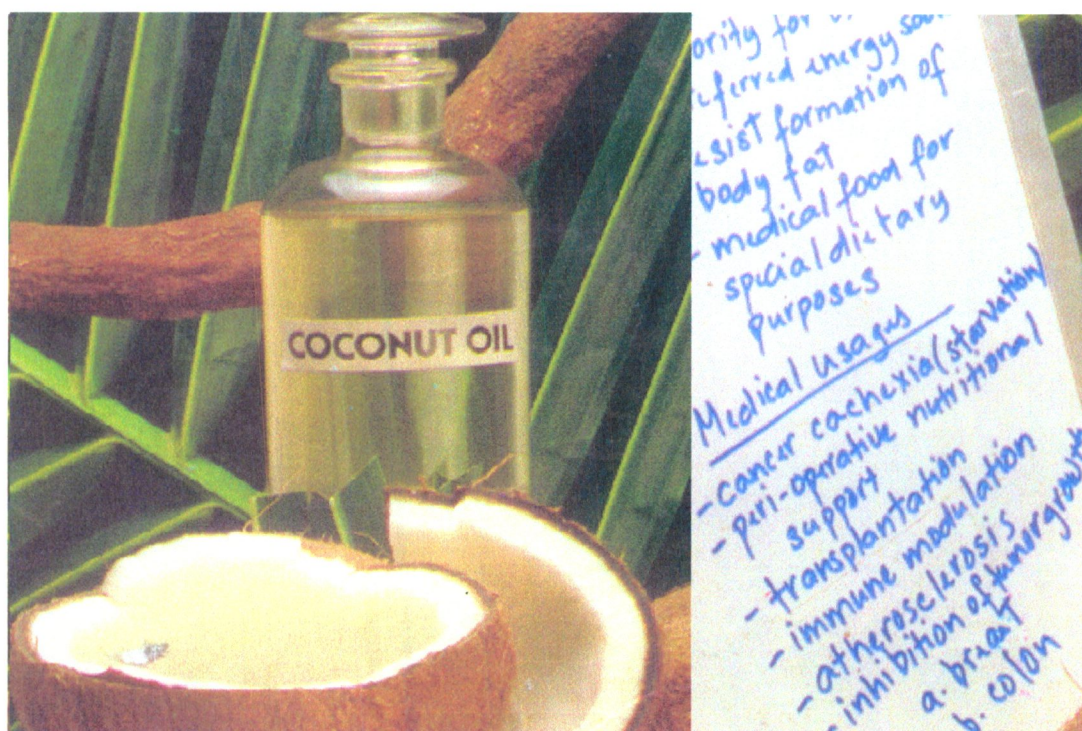 COCONUT OIL
ority for
eferred energy sou
sist formation of
body fat
- medical food for
special dietary
purposes
Medical Usages
- cancer cachexia (starvation)
- peri-operative nutritional
support
- transplantation
- immune modulation
- atherosclerosis
- inhibition of tumor growth
a. breast
b. colon